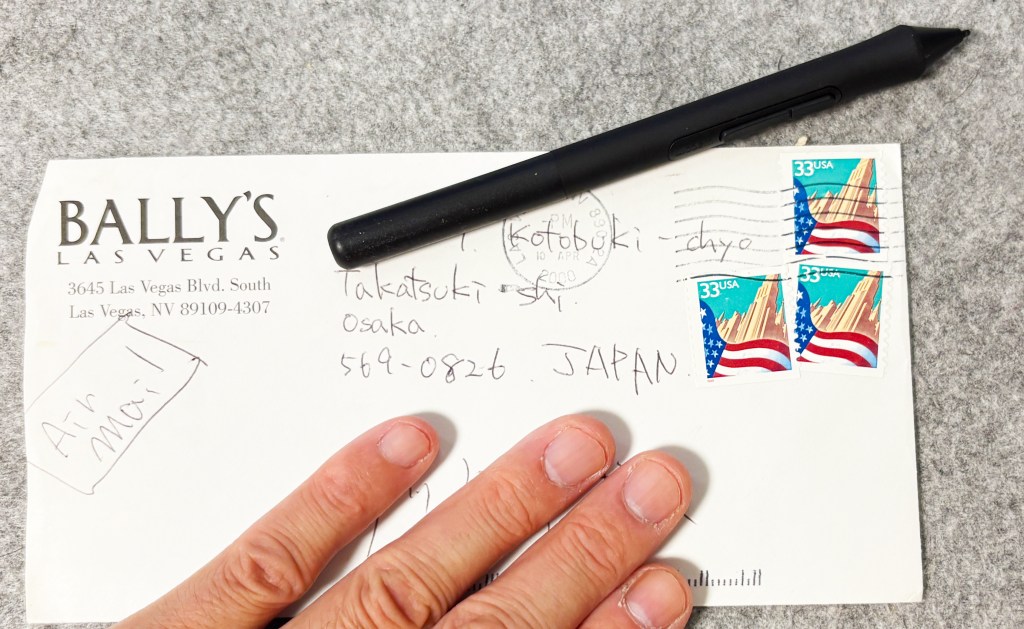 BALLY'S
LAS VEGAS
3645 Las Vegas Blvd. South
Las Vegas, NV 89109-4307
Air
mail
PM
10 APR
2000
1. Kotobuki-chyo
Takatsuki-shi,
Osaka.
569-0826. JAPAN.
33USA
33USA
33USA